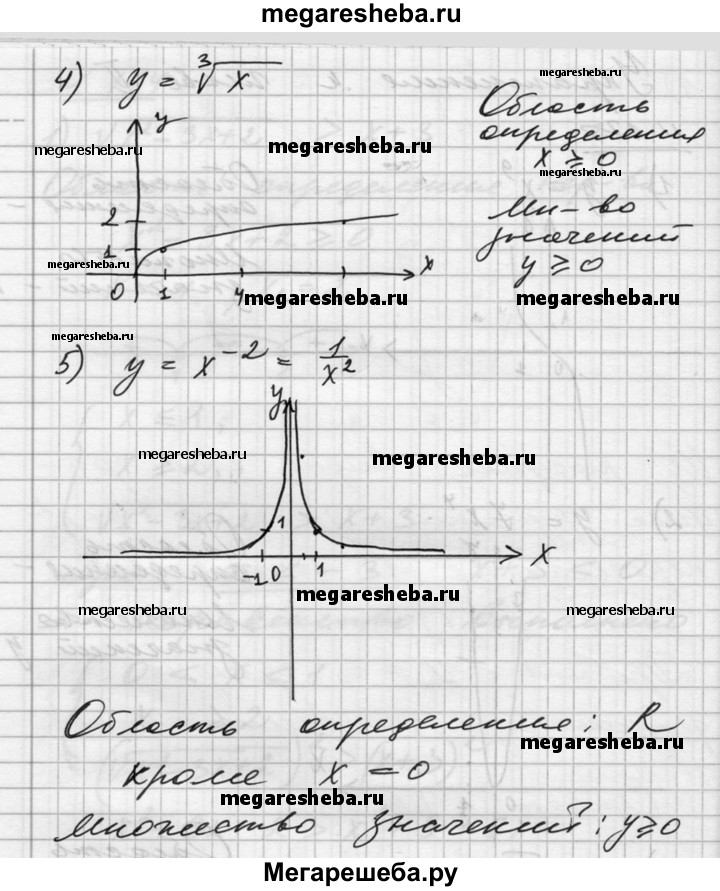 megaresheba.ru
4) y = ∛x
y
megaresheba.ru
megaresheba.ru
megaresheba.ru
Область
определения
x ⩾ 0
megaresheba.ru
Мн-во
значений
y ⩾ 0
2
1
megaresheba.ru
0 1 4
x
megaresheba.ru
megaresheba.ru
megaresheba.ru
5) y = x⁻² = 1/x²
y
megaresheba.ru
megaresheba.ru
1
-1 0 1
x
megaresheba.ru
megaresheba.ru
megaresheba.ru
Область определения: R
megaresheba.ru
кроме x = 0
megaresheba.ru
Множество значений: y ⩾ 0
Мегарешеба.ру